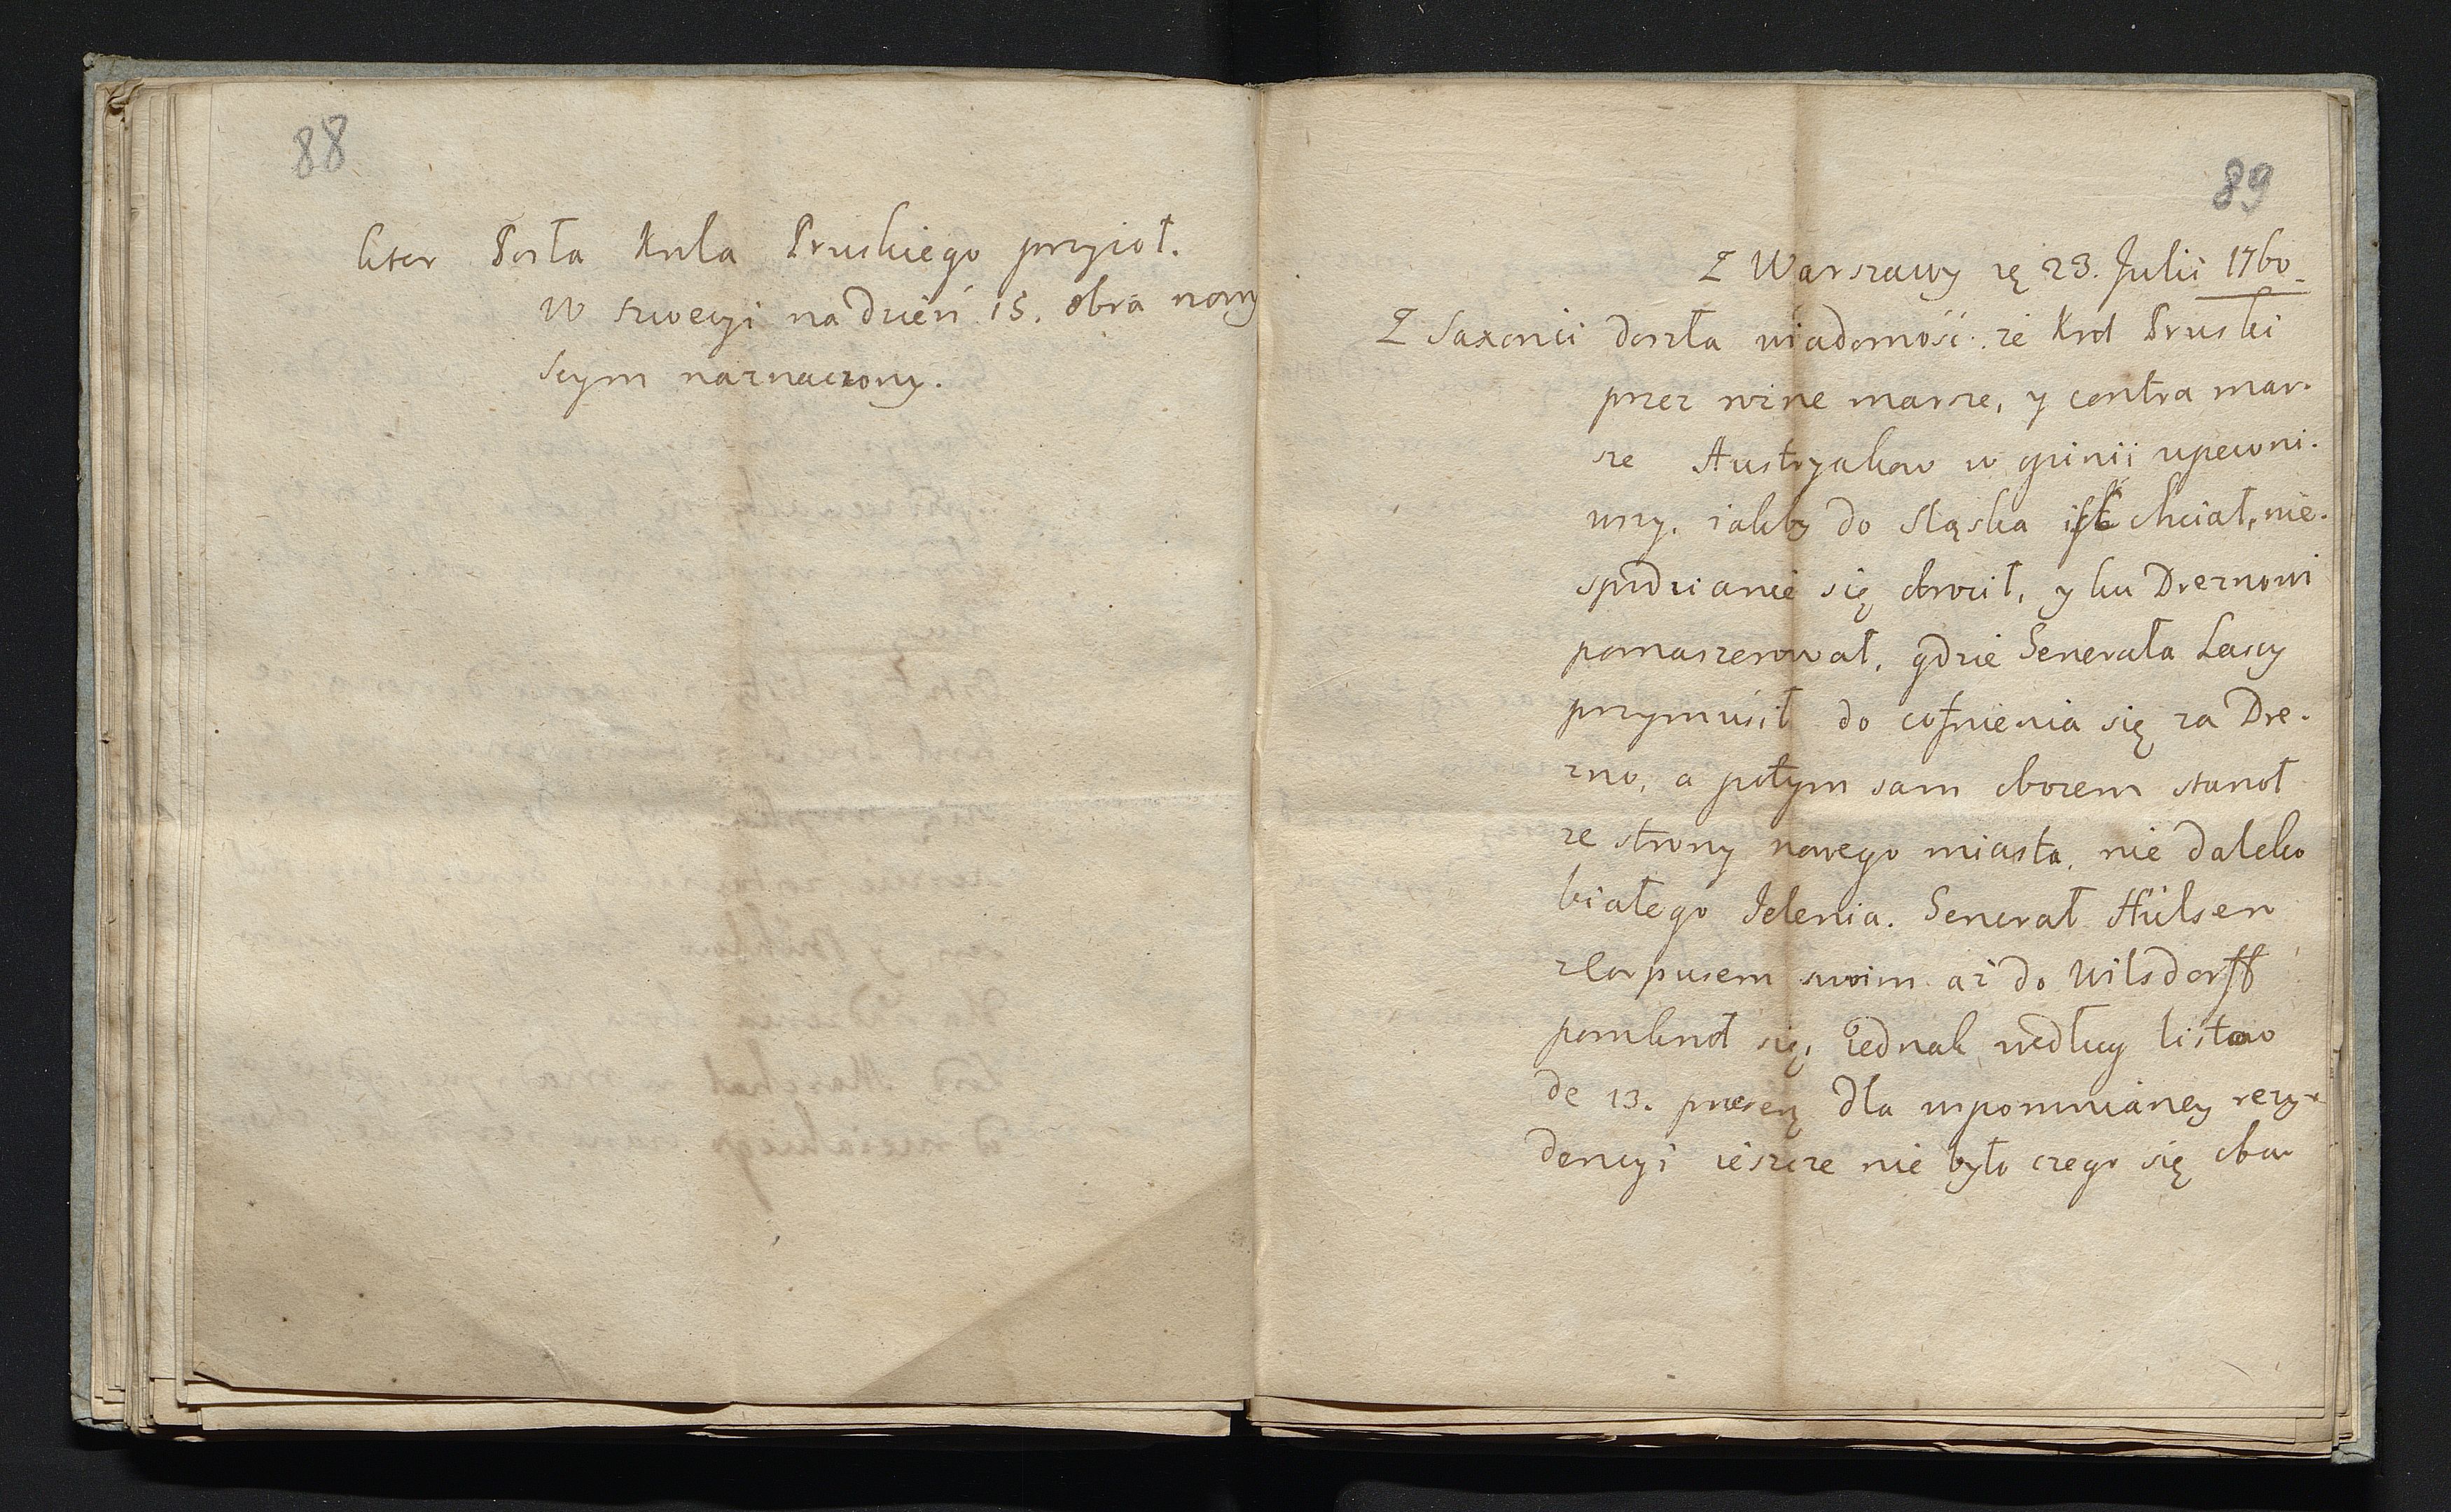 88
kter Posła Krola Pruskiego przyioł.
W szwecyi na dzień 15. 8bra nowy
seym naznaczony.
89
Z Warszawy 23. Julii 1760
Z Saxonii doszła wiadomość. że Krol Pruski
przez rożne marsze, y contra mar-
sze Austryakow w opinii upewni-
wszy. iakby do Sląska iść chciał, nie-
spodzianie się obrocił, y ku Dreznowi
pomaszerował, gdzie Generała Lascy
przymusił do cofnienia się za Dre-
zno, a potym sam obozem stanoł
ze strony nowego miasta, nie daleko
białego Jelenia. Generał Hülsen
z korpusem swoim aż do Wilsdorff
pomknoł się, iednak według listow
de 13. praesen dla wspomnianey rezy-
dencyi ieszcze nie było czego się oba-